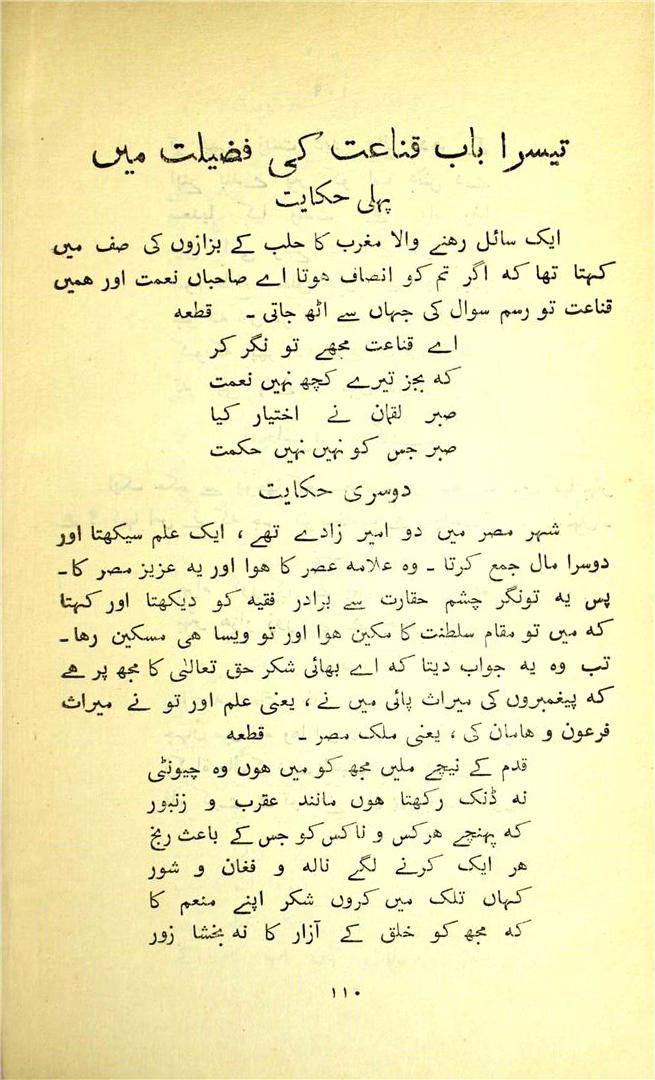 تیسرا باب قناعت کی فضیلت میں
پہلی حکایت
ایک سائل رھنے والا مغرب کا حلب کے بزازوں کی صف میں
کہتا تھا کہ اگر تم کو انصاف ھوتا اے صاحباں نعمت اور ھمیں
قناعت تو رسم سوال کی جہاں سے اٹھ جاتی ۔ قطعہ
اے قناعت مجھے تو نگر کر
کہ بجز تیرے کچھ نہیں نعمت
صبر لقمان نے اختیار کیا
صبر جس کو نہیں نہیں حکمت
دوسری حکایت
شہر مصر میں دو امیر زادے تھے ، ایک علم سیکھتا اور
دوسرا مال جمع کرتا ۔ وہ علامہ عصر کا ھوا اور یہ عزیز مصر کا ۔
پس یہ تونگر چشم حقارت سے برادر فقیہ کو دیکھتا اور کہتا
کہ میں تو مقام سلطنت کا مکین ھوا اور تو ویسا ھی مسکین رھا ۔
تب وہ یہ جواب دیتا کہ اے بھائی شکر حق تعالیٰ کا مجھ پر ھے
کہ پیغمبروں کی میراث پائی میں نے ، یعنی علم اور تو نے میراث
فرعون و ھامان کی ، یعنی ملک مصر ۔ قطعہ
قدم کے نیچے ملیں مجھ کو میں ھوں وہ چیونٹی
نہ ڈنک رکھتا ھوں مانند عقرب و زنبور
کہ پہنچے ھر کس و ناکس کو جس کے باعث رنج
ھر ایک کرنے لگے نالہ و فغان و شور
کہاں تلک میں کروں شکر اپنے منعم کا
کہ مجھ کو خلق کے آزار کا نہ بخشا زور
۱۱۰